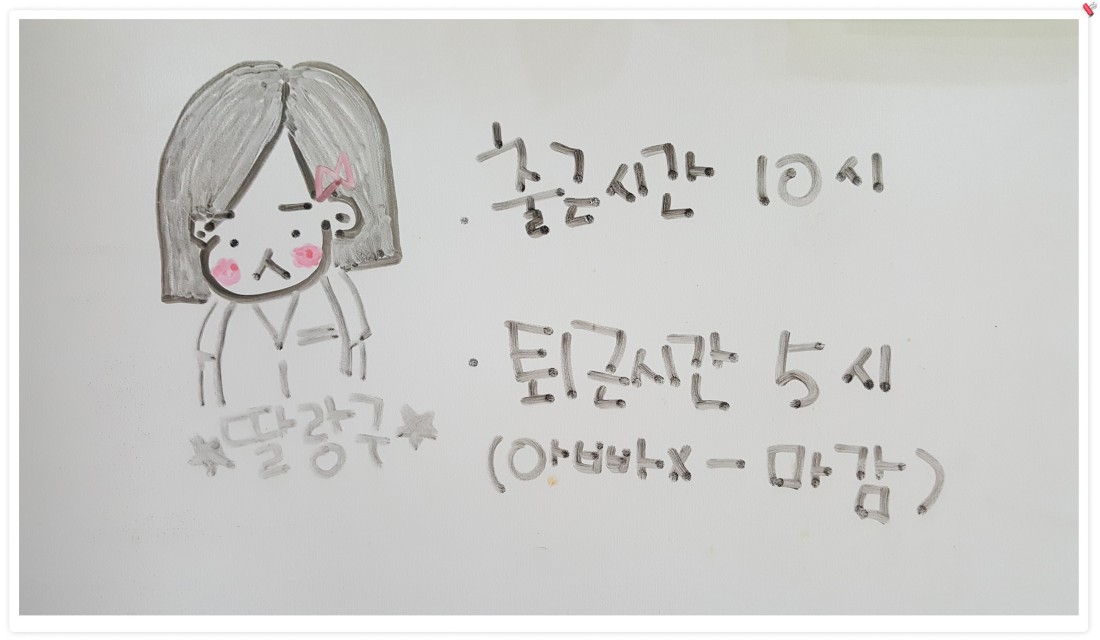 · 출근시간 10시
· 퇴근시간 5시
(아빠X - 마감)
★딸랑구★